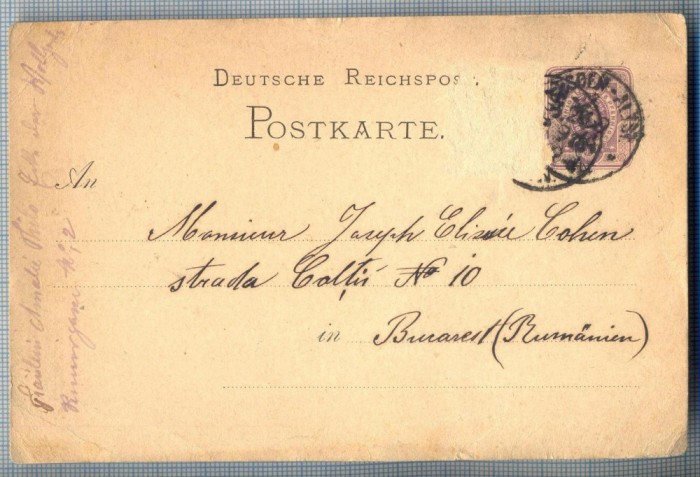 DEUTSCHE REICHSPOST.
POSTKARTE.
An
Monsieur Joseph Elisée Cohen
strada Colții No 10
in Bucarest (Rumänien)
Fräulein Amalie